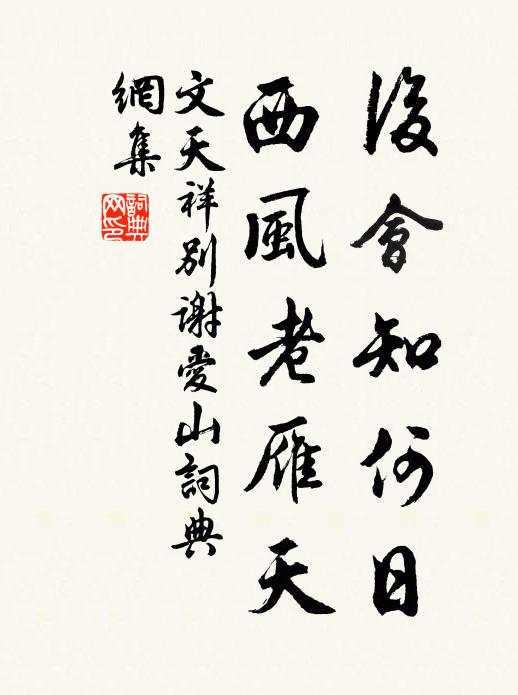 後會知何日
西風老雁天
文天祥別謝愛山詞典
網集
詞典
网印